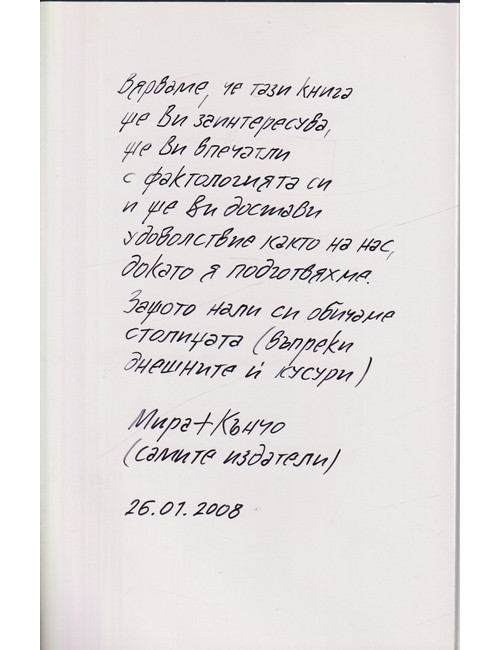 Вярваме, че тази книга
ще ви заинтересува,
ще ви впечатли
с фактологията си
и ще ви достави
удоволствие както на нас,
докато я подготвяхме.
Защото нали си обичаме
столицата (въпреки
днешните ѝ кусури)
Мира+Кънчо
(самите издатели)
26.01.2008